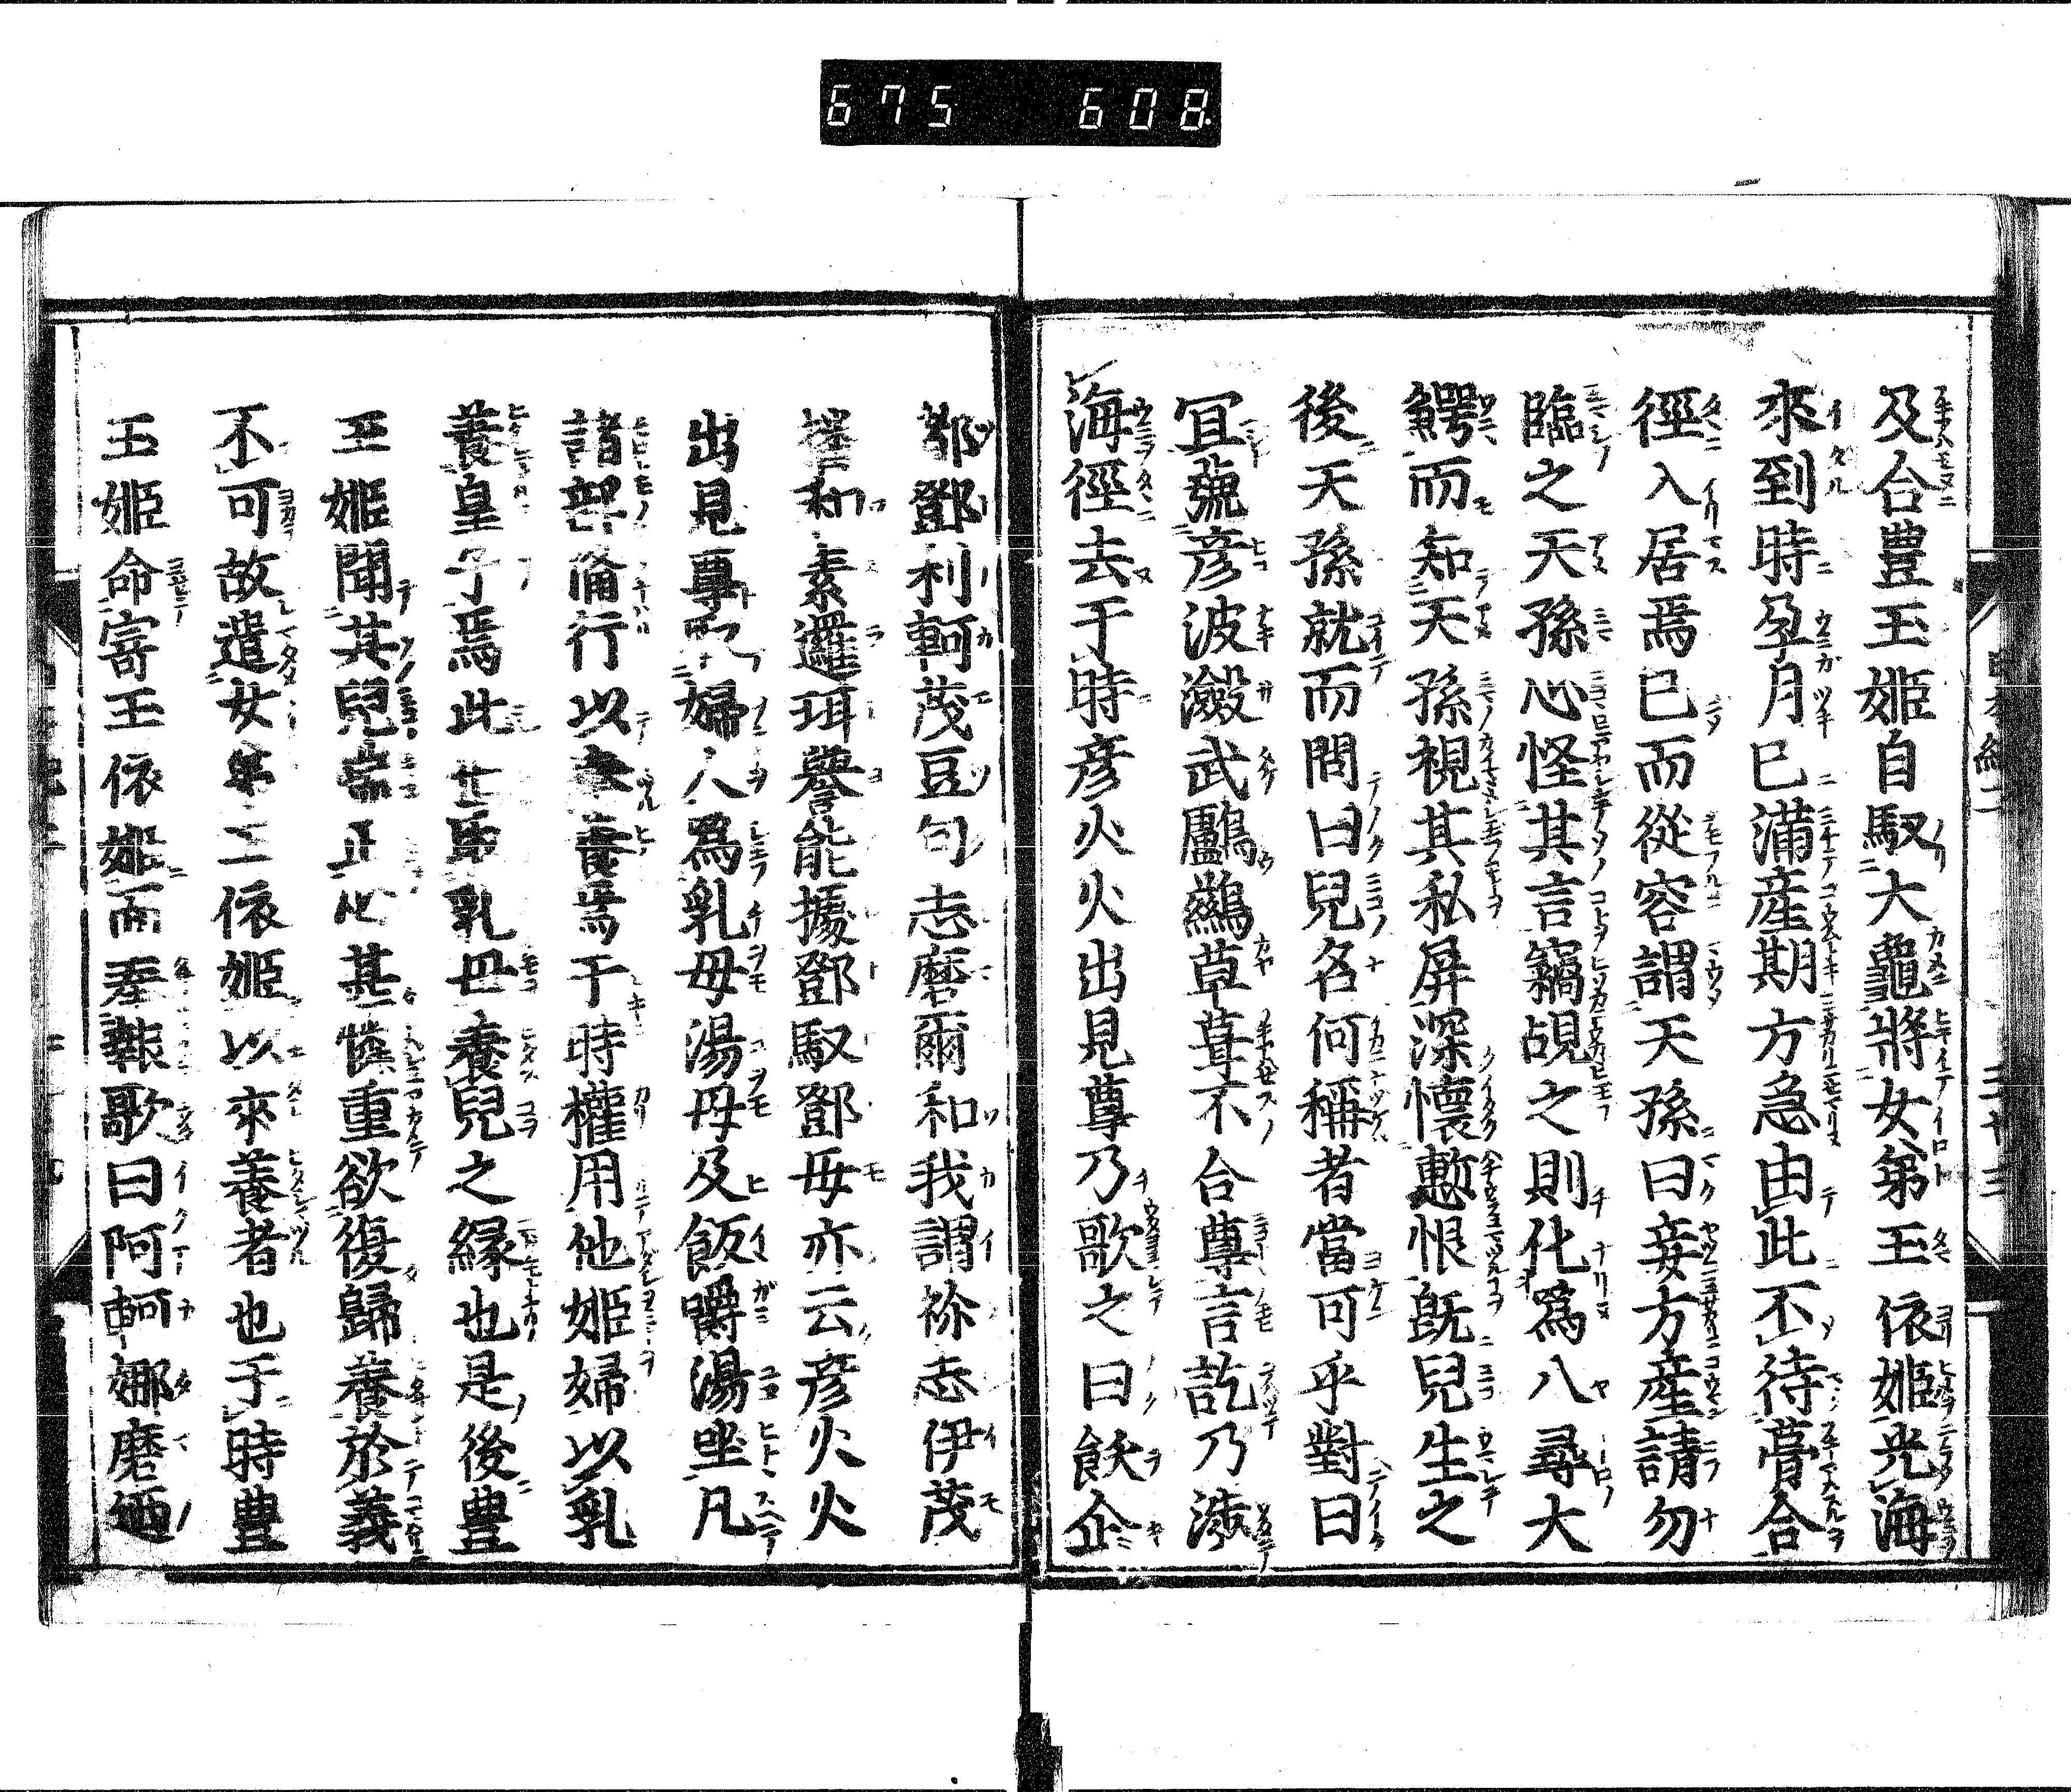 675 608
及合豊玉姫自馭大龜將女弟玉依姫光海
來到時孕月已滿産期方急由此不待葺合
徑入居焉已而從容謂天孫曰妾方産請勿
臨之天孫心怪其言竊覘之則化爲八尋大
鰐而知天孫視其私屏深懷慙恨既兒生之
後天孫就而問曰兒名何稱者當可乎對曰
宜號彦波瀲武鸕鷀草葺不合尊言訖乃渉
海徑去于時彦火火出見尊乃歌之曰飫企
都鄧利軻茂豆句志磨爾和我謂祢志伊茂
播和素邏珥譽能據鄧馭鄧母亦云彦火火
出見尊取婦人爲乳母湯母及飯嚼湯坐凡
諸部備行以奉養焉于時權用他姫婦以乳
養皇子焉此世取乳母養兒之縁也是後豊
玉姫聞其兒端正心甚憐重欲復歸養於義
不可故遣女弟玉依姫以來養者也于時豊
玉姫命寄玉依姫而奉報歌曰阿軻娜磨廼